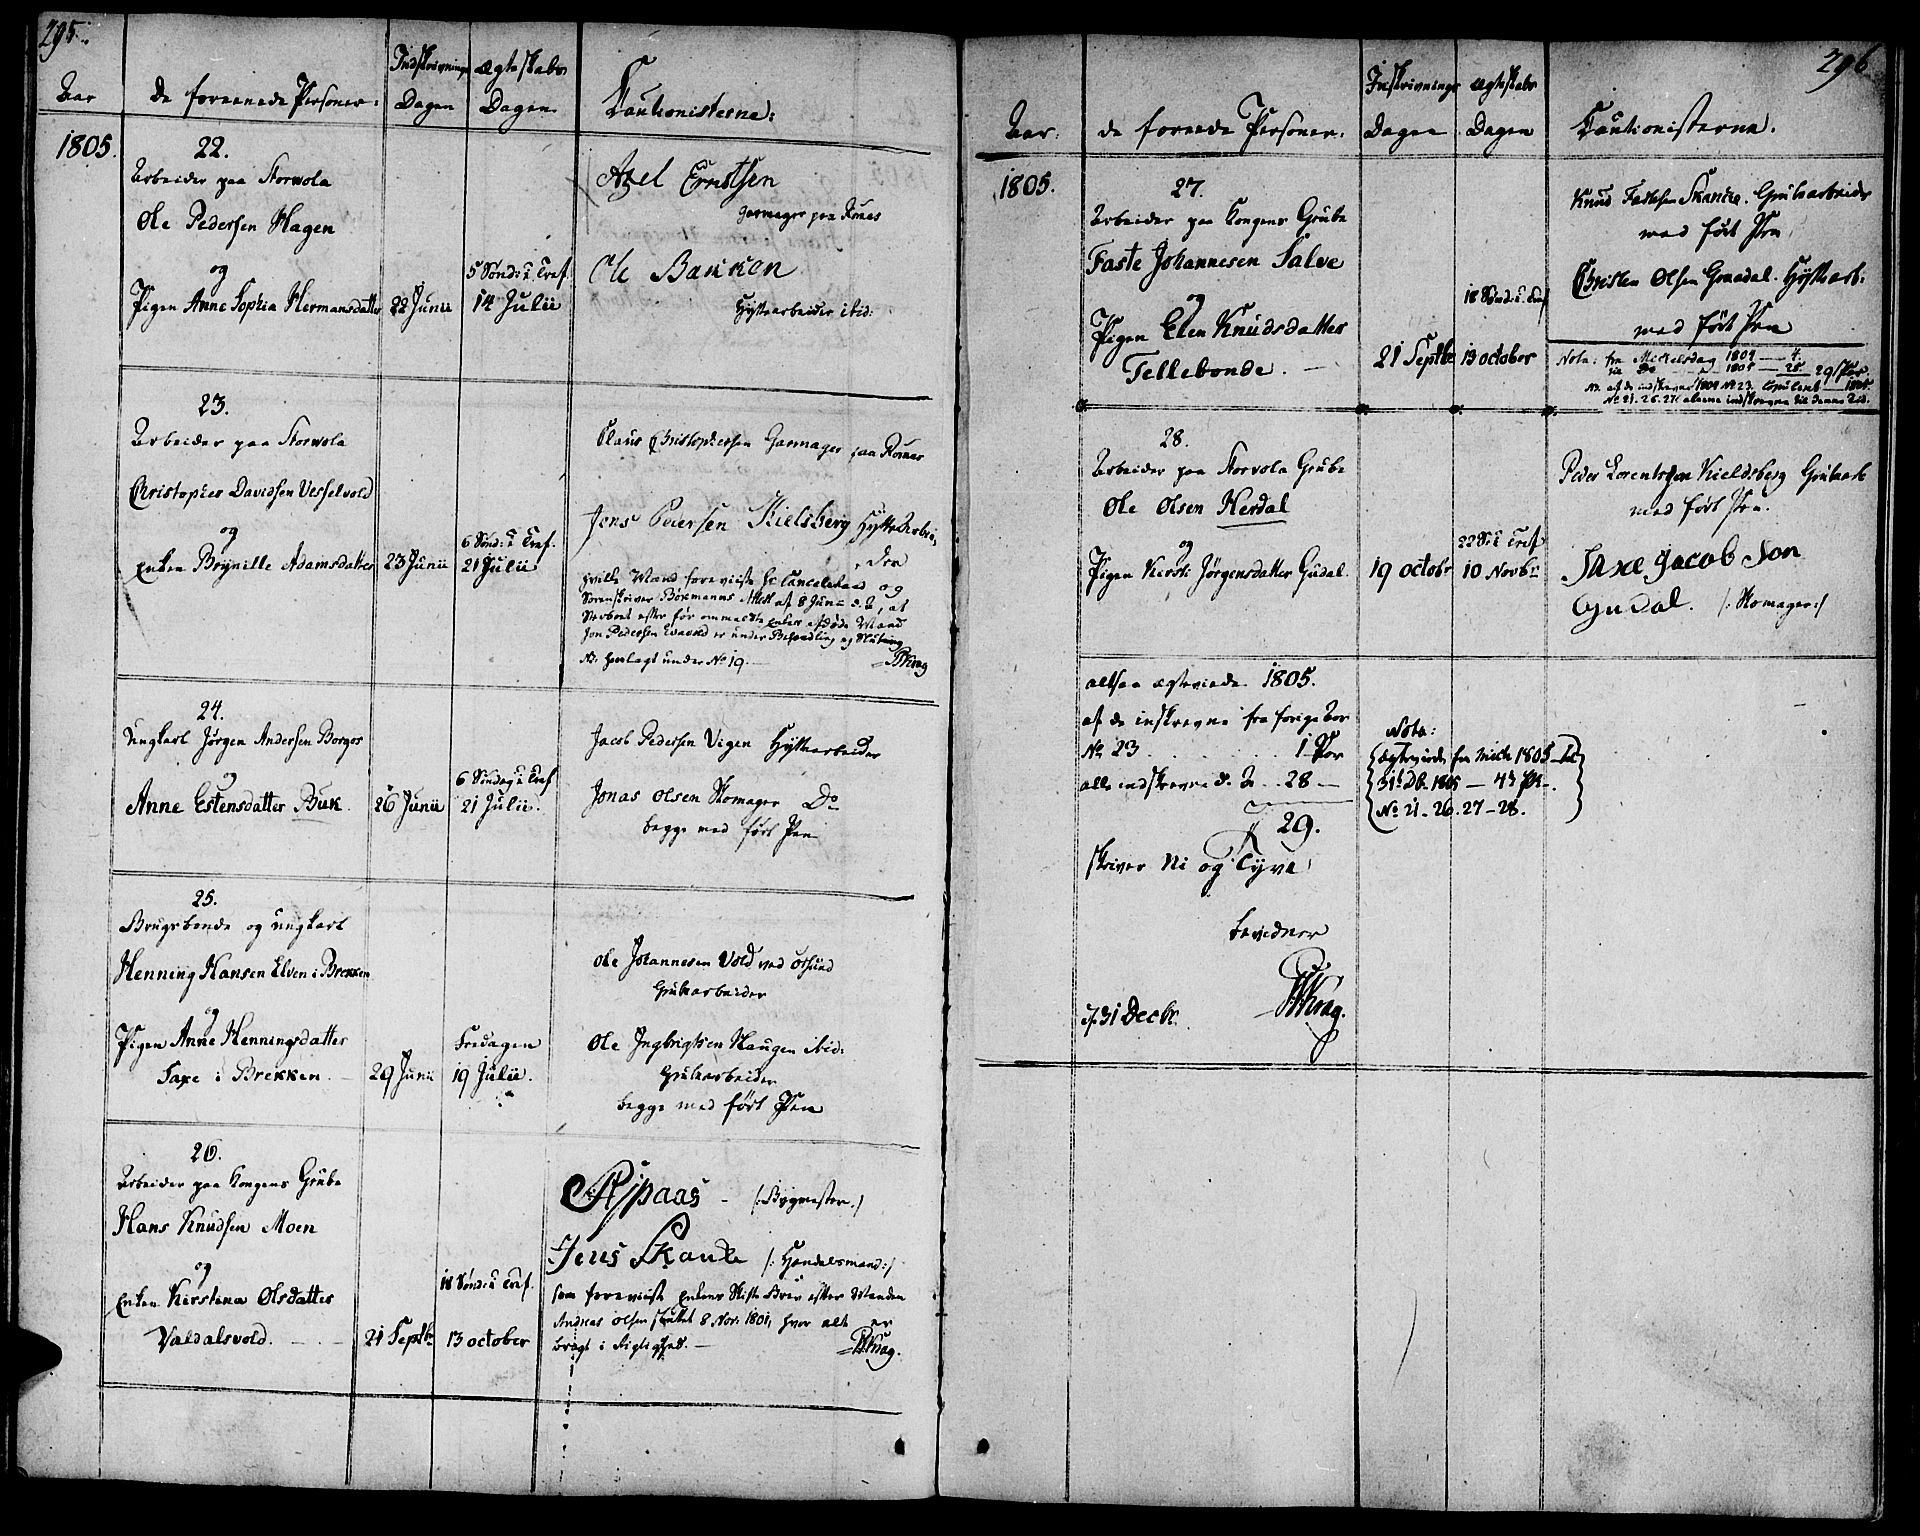 295.
Aar
de foreenede Personer:
Indskrivnings Dagen
Ægteskabs Dagen
Cautionisterne:
1805.
22.
Arbeider paa Storwola
Ole Pedersen Hagen
og
Pigen Anne Sophia Hermansdatter
22 Junii
5 Sønd: i Tref.
14 Julii
Axel Ernstsen
Garmager paa Røraas
Ole Bakken
Hyttearbeider ibid:
23.
Arbeider paa Storwola
Christopher Davidsen Vesselvold
og
Enken Brynille Adamsdatter
23 Junii
6 Sønd: i Tref.
21 Julii
Claus Christophersen Garmager paa Røraas
Jens Pedersen Kielsberg Hyttearbei-
der
hvilke Mænd foreviiste Hr Cancelieraad og
Sorenskriver Bøkmanns Attest af 8 Junii d. A, at
Sterboet efter før ommeldte Enkes afdøde Mand
Jon Pedersen Evavold er under Behandling og Slutning
NB. henlagt under No 19.
PKrag
24.
Ungkarl Jørgen Andersen Borgos
og
Anne Estensdatter Buk
26 Junii
6 Søndag i Tref
21 Julii.
Jacob Pedersen Vigen Hyttearbeider
Jonas Olsen Skomager Do
begge med ført Pen
25.
Brugsbonde og Ungkarl
Henning Hansen Elven i Brekken
og
Pigen Anne Henningsdatter
Saxe i Brekken.
29 Junii
Fredagen
19 Julii.
Ole Johannesen Vold ved Orsund
Grubearbeider
Ole Ingbrigtsen Haugen ibid:
Grubearbeider
begge med ført Pen
26.
Arbeider paa Kongens Grube
Hans Knudsen Moen
og
Enken Kirstina Olsdatter
Valdalsvold.
21 Septbr
18 Sønd: i Tref.
13 october
Aspaas - /: Bygmester :/
Jens Skanke /: Handelsmand :/
som foreviiste Enkens Skifte Brev efter Manden
Andreas Olsen sluttet 8 Nov: 1801, hvor alt er
bragt i Rigtighed.
PKrag.
296
Aar.
de foreede Personer.
Inskrivnings Dagen
Ægteskabs Dagen
Cautionisterne.
1805.
27.
Arbeider paa Kongens Grube
Faste Johannesen Salve
og
Pigen Elen Knudsdatter
Tellebonde.
21 Septbr
18 Sønd: i Tref
13 october
Knud Fastesen Skancke. Grubearbeider
med ført Pen
Christen Olsen Graadal. Hyttearb:
med ført Pen
Nota: fra Mickelsdag 1804 — 4.
1805 — 25
29 Par.
NB. af de indskrevne 1804 No 23. copuleret — 1805
No 21. 26. 27 alene indskrevne til denne Tid.
28.
Arbeider paa Storvola Grube
Ole Olsen Herdal
og
Pigen Kirsti Jørgensdatter Gudal.
19 octobr
22 S: i Tref
10 Novbr
Peder Lorentszen Kieldsberg Grubearb
med ført Pen.
Saxe Jacob Son
Gudal. /: Skomager :/
altsaa ægteviede 1805.
af de inskrevne fra forige Aar
No 23 . . . . 1 Par
alle indskrevne d. A. 28 —
29.
skriver Ni og Tyve
bevidner
PKrag.
d. 31 Decbr.
Nota:
ægteviede fra Mich 1805 til
31te Db. 1805 — 4 Pr.
No 21. 26. 27 — 28.